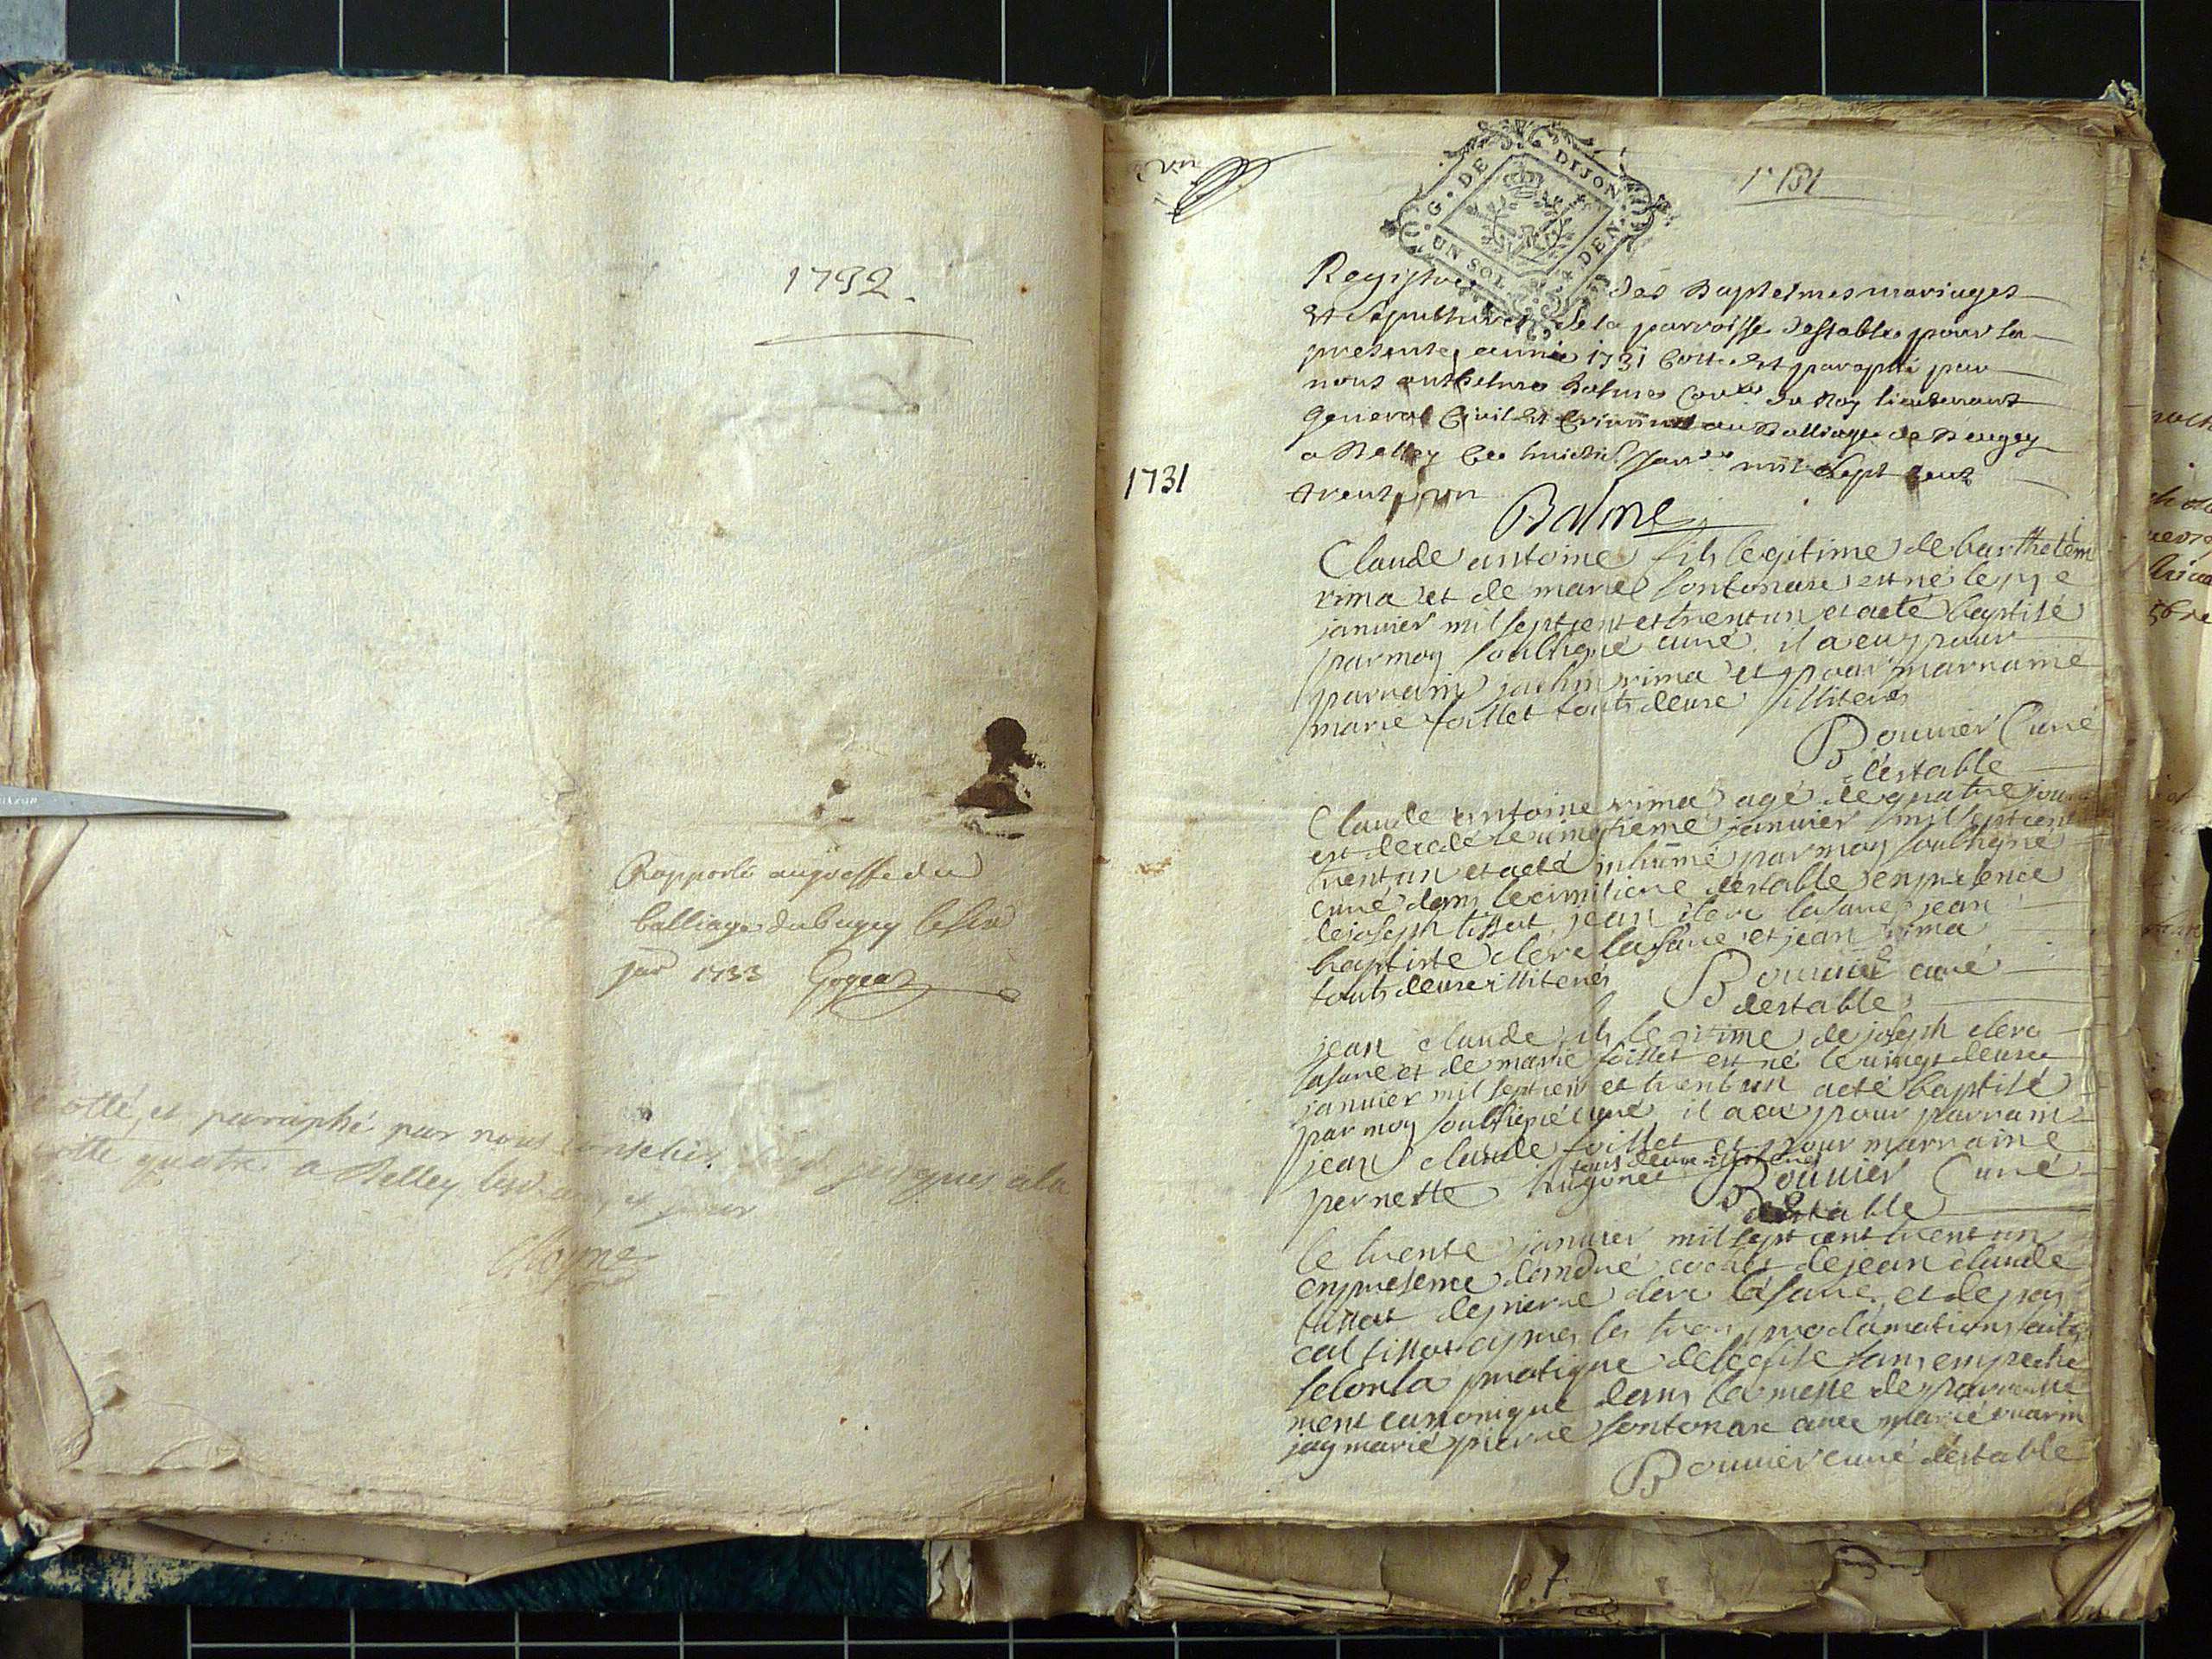 1732.
Rapporté au greffe du
balliage du Bugey le six
jar 1733
cotté et paraphé par nous jusques a la
cotte quatre a Belley
1731
G. DE DIJON
UN SOL DEN.
Registre des Baptesmes mariages
et sepultures de la parroisse destable pour la
presente année 1731 Cotte et paraphé par
nous anthelme Balme Con.er du Roy lieutenant
General Civil et Criminel au Balliage de Beugey
a Belley le huictie Janv.er mil sept cent
trente un
1731
Balme
Claude antoine fils legitime de barthelem
rima et de marie fontanare est né le
janvier mil sept cent et trent un et a eté baptisé
par moy soubsigné curé. il a eu pour
parrain rima et pour marraine
marie foillet touts deuxe illiterés
Bouvier Curé
d'estable
Claude antoine rima agé de quatre jours
est decedé le janvier mil sept cent
trent un et a eté inhumé par moy soubsigné
curé dans le cimitiere destable en présence
de joseph tissot, jean clerc lafave jean
baptiste clerc lafave et jean rima
touts deuxe illiterés Bouvier curé
destable
jean claude fils legitime de joseph clerc
lafave et de marie foillet est né le vingt deuxe
janvier mil sept cent et trent un a eté baptisé
par moy soubsigné curé il a eu pour parrain
jean claude foillet et pour marraine
touts deuxe illiterés
pernette hugonet Bouvier Curé
destable
le trente janvier mil sept cent trent un
en présence d'andré de jean claude
tissot de pierre clerc lafave et de pas
cal tissot apres les trois proclamations faites
selon la pratique de l'eglise sans empeche
ment canonique dans la messe de parroisse
jay marié pierre fontanare avec marie
Bouvier curé destable